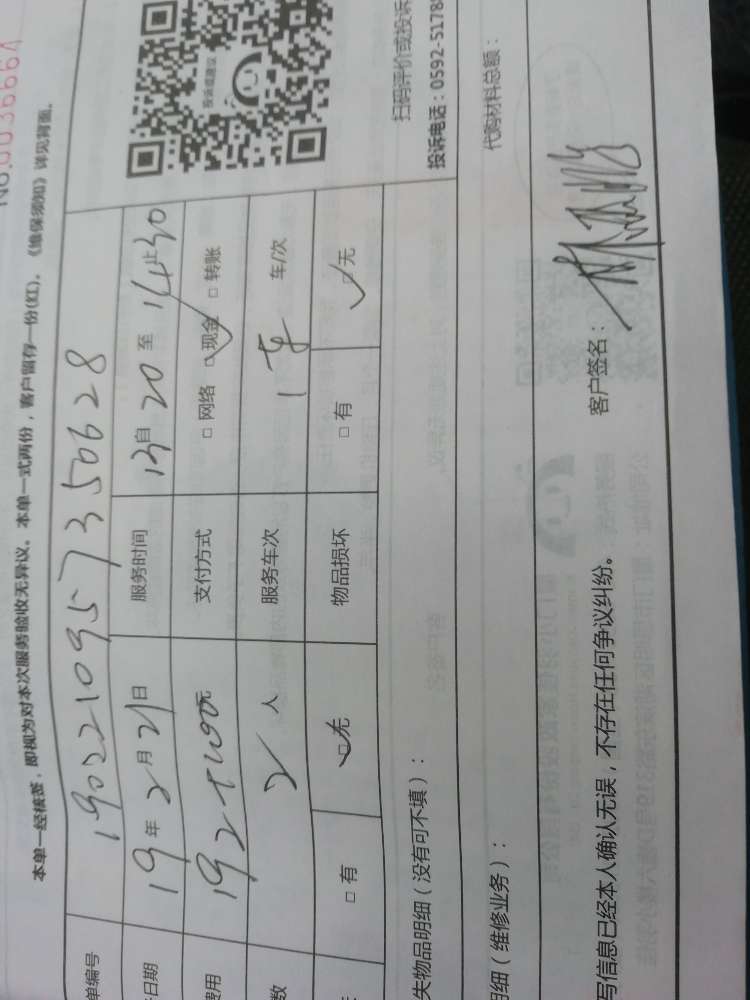 No.0036664
本单一经核签，即视为对本次服务验收无异议。本单一式两份，客户留存一份(红)。《维保须知》详见背面。
单编号 1902210957350628
日期 19年2月21日 服务时间 13自20至14止30
费用 元 支付方式 □网络 ☑现金 □转账
数 2人 服务车次 1车 车/次
□有 ☑无 物品损坏 □有 ☑无
投诉或建议
扫码评价或投诉
投诉电话：0592-5178
失物品明细（没有可不填）：
明细（维修业务）：
代购材料总额：
写信息已经本人确认无误，不存在任何争议纠纷。
客户签名：